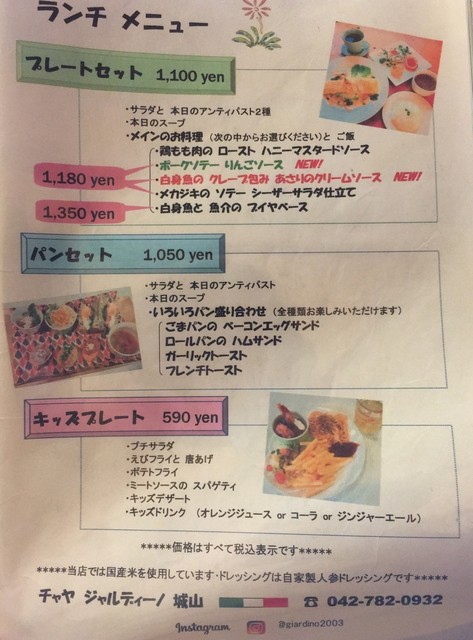 ランチ メニュー
プレートセット 1,100 yen
・サラダと 本日のアンティパスト2種
・本日のスープ
・メインのお料理 (次の中からお選びください)と ご飯
・鶏もも肉の ロースト ハニーマスタードソース
・ポークソテー りんごソース NEW!
1,180 yen ・白身魚の クレープ包み あさりのクリームソース NEW!
・メカジキの ソテー シーザーサラダ仕立て
1,350 yen ・白身魚と 魚介の ブイヤベース
パンセット 1,050 yen
・サラダと 本日のアンティパスト
・本日のスープ
・いろいろパン盛り合わせ (全種類お楽しみいただけます)
ごまパンの ベーコンエッグサンド
ロールパンの ハムサンド
ガーリックトースト
フレンチトースト
キッズプレート 590 yen
・プチサラダ
・えびフライと 唐あげ
・ポテトフライ
・ミートソースの スパゲティ
・キッズデザート
・キッズドリンク (オレンジジュース or コーラ or ジンジャーエール)
*****価格はすべて税込表示です*****
*****当店では国産米を使用しています・ドレッシングは自家製人参ドレッシングです*****
チャヤ ジャルディーノ 城山 ☎ 042-782-0932
Instagram @giardino2003